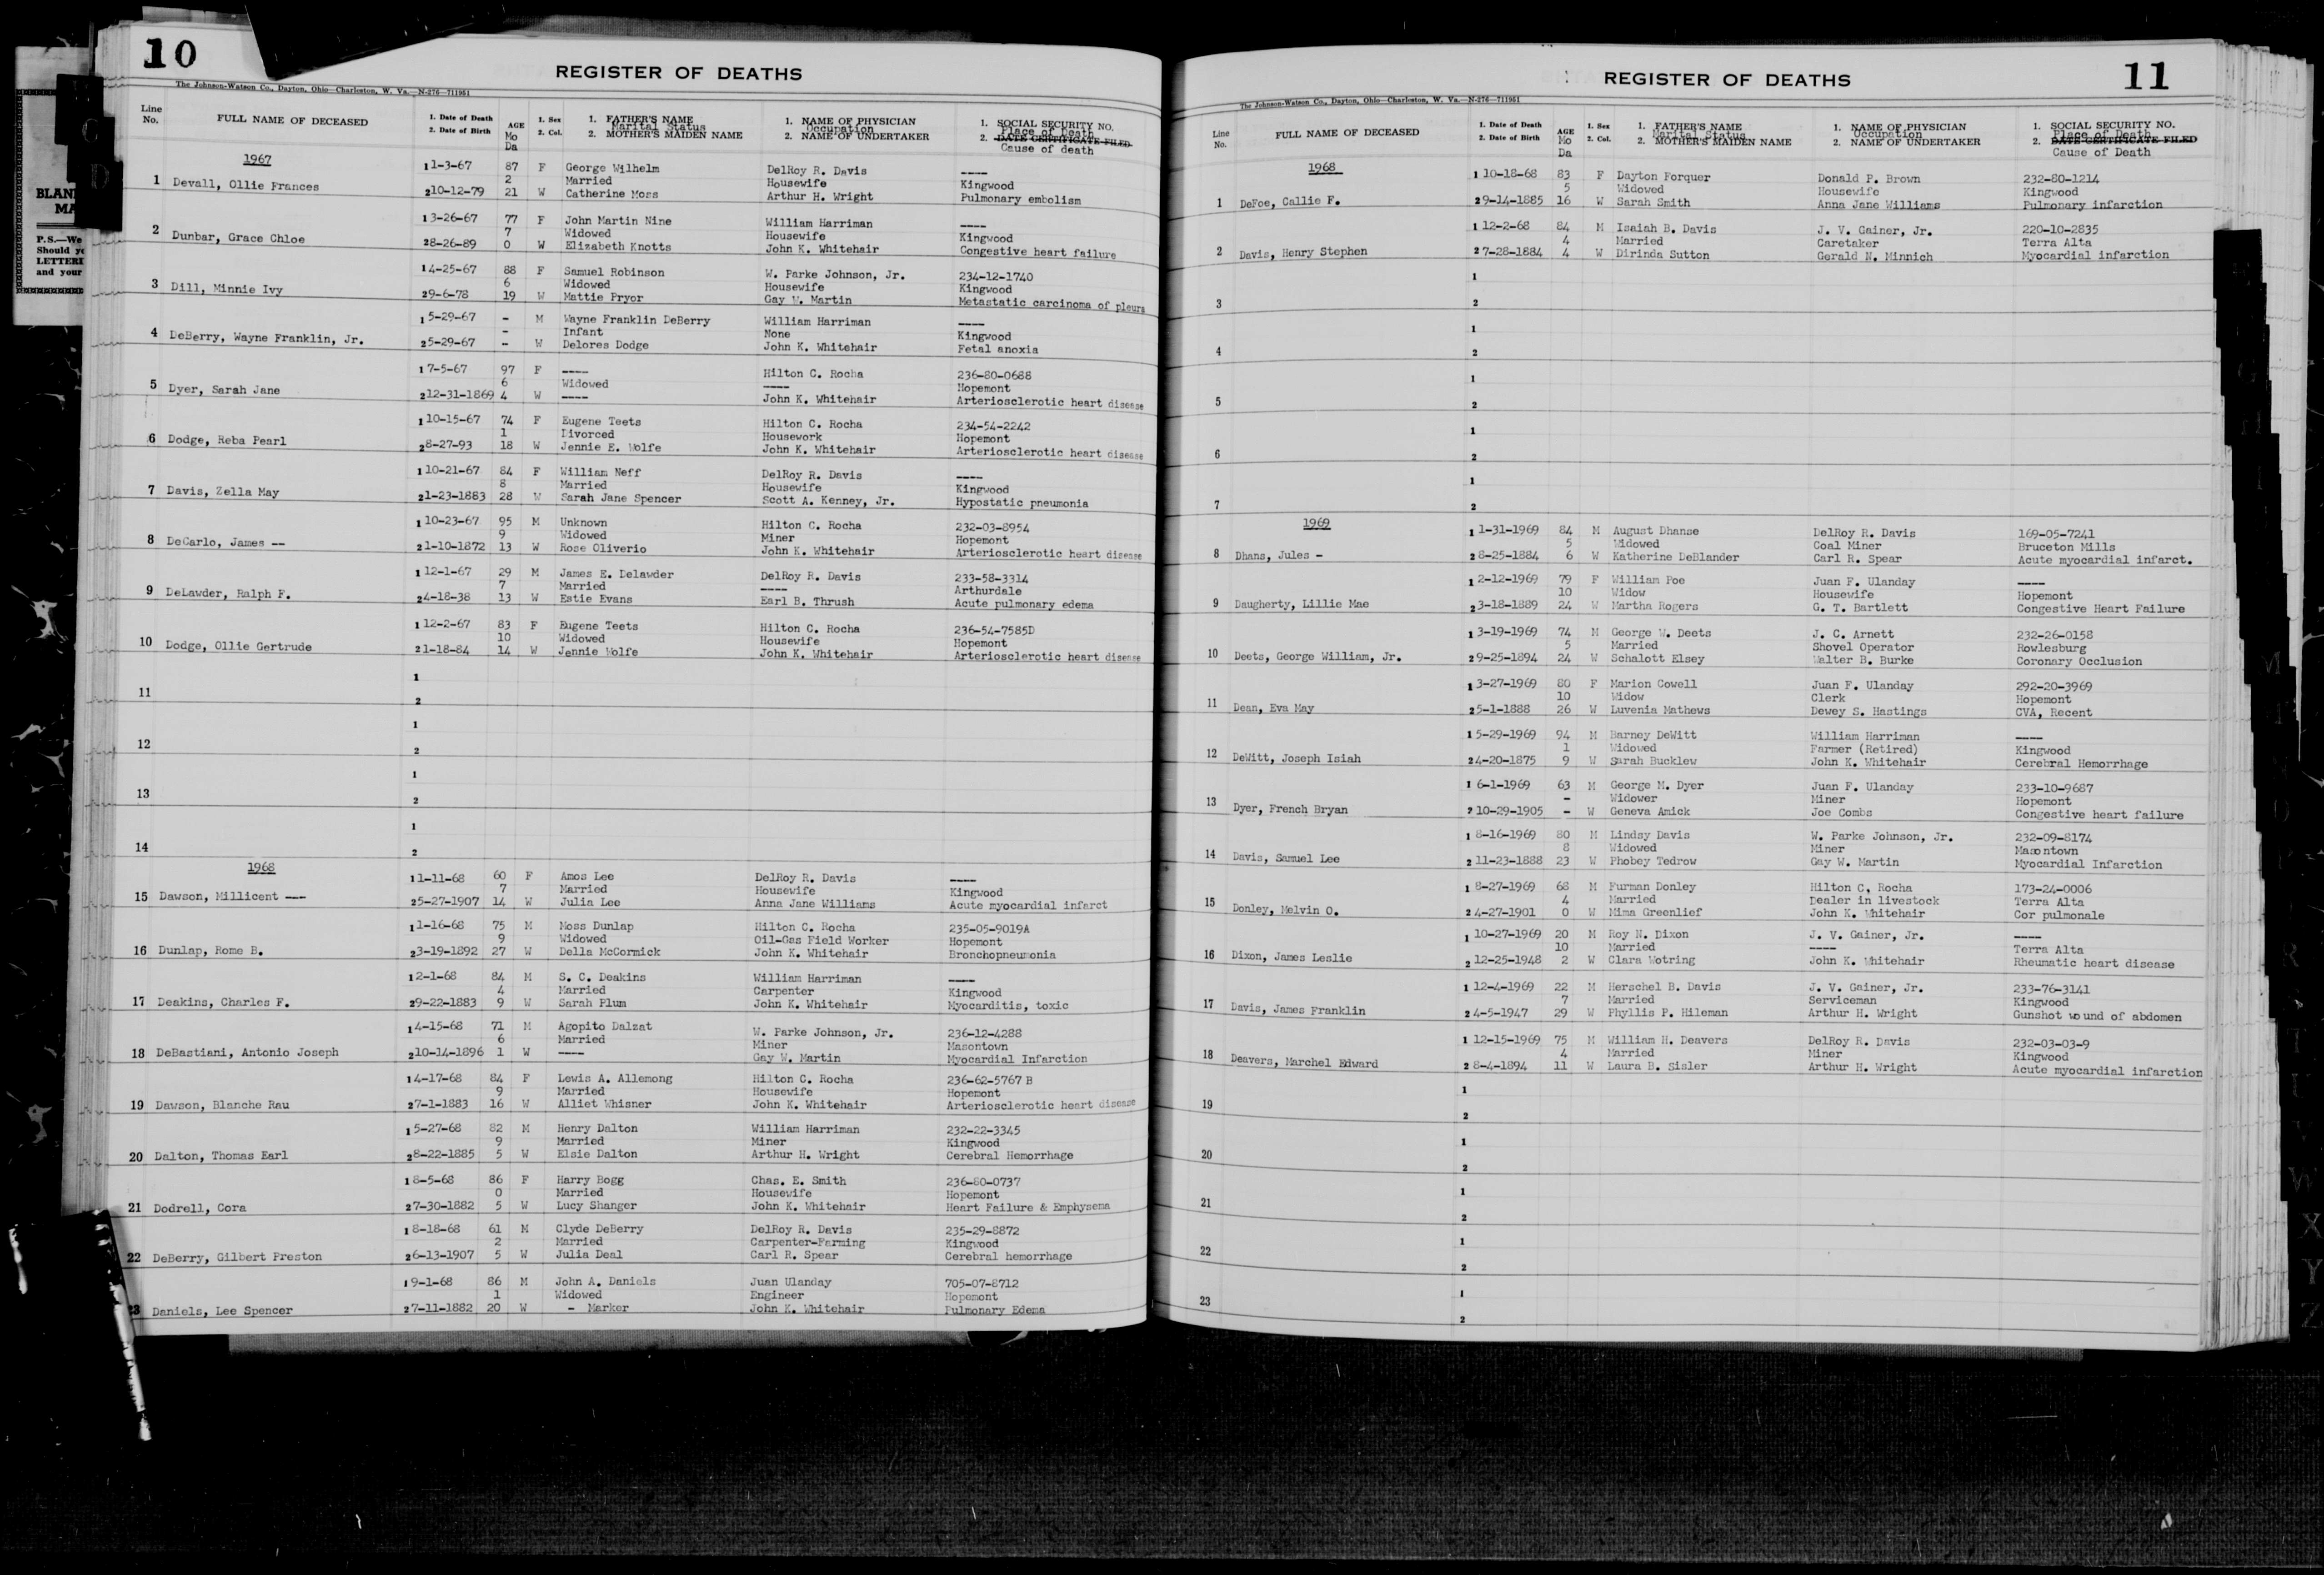 10
REGISTER OF DEATHS
The Johnson-Watson Co., Dayton, Ohio—Charleston, W. Va.—N-276—711951
Line No. FULL NAME OF DECEASED 1. Date of Death 2. Date of Birth AGE Mo Da 1. Sex 2. Col. 1. FATHER'S NAME Marital Status 2. MOTHER'S MAIDEN NAME 1. NAME OF PHYSICIAN Occupation 2. NAME OF UNDERTAKER 1. SOCIAL SECURITY NO. Place of Death 2. DATE CERTIFICATE FILED Cause of death
1967
1 1-3-67 87 F George Wilhelm DelRoy R. Davis ----
1 Devall, Ollie Frances 2 Married Housewife Kingwood
2 10-12-79 21 W Catherine Moss Arthur H. Wright Pulmonary embolism
1 3-26-67 77 F John Martin Nine William Harriman ----
2 Dunbar, Grace Chloe 7 Widowed Housewife Kingwood
2 8-26-89 0 W Elizabeth Knotts John K. Whitehair Congestive heart failure
1 4-25-67 88 F Samuel Robinson W. Parke Johnson, Jr. 234-12-1740
3 Dill, Minnie Ivy 6 Widowed Housewife Kingwood
2 9-6-78 19 W Mattie Pryor Gay W. Martin Metastatic carcinoma of pleura
1 5-29-67 - M Wayne Franklin DeBerry William Harriman ----
4 DeBerry, Wayne Franklin, Jr. - Infant None Kingwood
2 5-29-67 - W Delores Dodge John K. Whitehair Fetal anoxia
1 7-5-67 97 F ---- Hilton C. Rocha 236-80-0688
5 Dyer, Sarah Jane 6 Widowed ---- Hopemont
2 12-31-1869 4 W ---- John K. Whitehair Arteriosclerotic heart disease
1 10-15-67 74 F Eugene Teets Hilton C. Rocha 234-54-2242
6 Dodge, Reba Pearl 1 Divorced Housework Hopemont
2 8-27-93 18 W Jennie E. Wolfe John K. Whitehair Arteriosclerotic heart disease
1 10-21-67 84 F William Neff DelRoy R. Davis ----
7 Davis, Zella May 8 Married Housewife Kingwood
2 1-23-1883 28 W Sarah Jane Spencer Scott A. Kenney, Jr. Hypostatic pneumonia
1 10-23-67 95 M Unknown Hilton C. Rocha 232-03-8954
8 DeCarlo, James -- 9 Widowed Miner Hopemont
2 1-10-1872 13 W Rose Oliverio John K. Whitehair Arteriosclerotic heart disease
1 12-1-67 29 M James E. Delawder DelRoy R. Davis 233-58-3314
9 DeLawder, Ralph F. 7 Married ---- Arthurdale
2 4-18-38 13 W Estie Evans Earl B. Thrush Acute pulmonary edema
1 12-2-67 83 F Eugene Teets Hilton C. Rocha 236-54-7585D
10 Dodge, Ollie Gertrude 10 Widowed Housewife Hopemont
2 1-18-84 14 W Jennie Wolfe John K. Whitehair Arteriosclerotic heart disease
1
11
2
1
12
2
1
13
2
1
14
2
1968
1 1-11-68 60 F Amos Lee DelRoy R. Davis ----
15 Dawson, Millicent --- 7 Married Housewife Kingwood
2 5-27-1907 14 W Julia Lee Anna Jane Williams Acute myocardial infarct
1 1-16-68 75 M Moss Dunlap Hilton C. Rocha 235-05-9019A
16 Dunlap, Rome B. 9 Widowed Oil-Gas Field Worker Hopemont
2 3-19-1892 27 W Della McCormick John K. Whitehair Bronchopneumonia
1 2-1-68 84 M S. C. Deakins William Harriman ----
17 Deakins, Charles F. 4 Married Carpenter Kingwood
2 9-22-1883 9 W Sarah Plum John K. Whitehair Myocarditis, toxic
1 4-15-68 71 M Agopito Dalzat W. Parke Johnson, Jr. 236-12-4288
18 DeBastiani, Antonio Joseph 6 Married Miner Masontown
2 10-14-1896 1 W ---- Gay W. Martin Myocardial Infarction
1 4-17-68 84 F Lewis A. Allemong Hilton C. Rocha 236-62-5767 B
19 Dawson, Blanche Rau 9 Married Housewife Hopemont
2 7-1-1883 16 W Alliet Whisner John K. Whitehair Arteriosclerotic heart disease
1 5-27-68 82 M Henry Dalton William Harriman 232-22-3345
20 Dalton, Thomas Earl 9 Married Miner Kingwood
2 8-22-1885 5 W Elsie Dalton Arthur H. Wright Cerebral Hemorrhage
1 8-5-68 86 F Harry Bogg Chas. E. Smith 236-80-0737
21 Dodrell, Cora 0 Married Housewife Hopemont
2 7-30-1882 5 W Lucy Shanger John K. Whitehair Heart Failure & Emphysema
1 8-18-68 61 M Clyde DeBerry DelRoy R. Davis 235-29-8872
22 DeBerry, Gilbert Preston 2 Married Carpenter-Farming Kingwood
2 6-13-1907 5 W Julia Deal Carl R. Spear Cerebral hemorrhage
1 9-1-68 86 M John A. Daniels Juan Ulanday 705-07-8712
23 Daniels, Lee Spencer 1 Widowed Engineer Hopemont
2 7-11-1882 20 W - Marker John K. Whitehair Pulmonary Edema
11
REGISTER OF DEATHS
The Johnson-Watson Co., Dayton, Ohio—Charleston, W. Va.—N-276—711951
Line No. FULL NAME OF DECEASED 1. Date of Death 2. Date of Birth AGE Mo Da 1. Sex 2. Col. 1. FATHER'S NAME Marital Status 2. MOTHER'S MAIDEN NAME 1. NAME OF PHYSICIAN Occupation 2. NAME OF UNDERTAKER 1. SOCIAL SECURITY NO. Place of Death 2. DATE CERTIFICATE FILED Cause of Death
1968
1 10-18-68 83 F Dayton Forquer Donald P. Brown 232-80-1214
1 DeFoe, Callie F. 5 Widowed Housewife Kingwood
2 9-14-1885 16 W Sarah Smith Anna Jane Williams Pulmonary infarction
1 12-2-68 84 M Isaiah B. Davis J. V. Gainer, Jr. 220-10-2835
2 Davis, Henry Stephen 4 Married Caretaker Terra Alta
2 7-28-1884 4 W Dirinda Sutton Gerald N. Minnich Myocardial infarction
1
3
2
1
4
2
1
5
2
1
6
2
1
7
2
1969
1 1-31-1969 84 M August Dhanse DelRoy R. Davis 169-05-7241
8 Dhans, Jules - 5 Widowed Coal Miner Bruceton Mills
2 8-25-1884 6 W Katherine DeBlander Carl R. Spear Acute myocardial infarct.
1 2-12-1969 79 F William Poe Juan F. Ulanday ----
9 Daugherty, Lillie Mae 10 Widow Housewife Hopemont
2 3-18-1889 24 W Martha Rogers G. T. Bartlett Congestive Heart Failure
1 3-19-1969 74 M George W. Deets J. C. Arnett 232-26-0158
10 Deets, George William, Jr. 5 Married Shovel Operator Rowlesburg
2 9-25-1894 24 W Schalott Elsey Walter B. Burke Coronary Occlusion
1 3-27-1969 80 F Marion Cowell Juan F. Ulanday 292-20-3969
11 Dean, Eva May 10 Widow Clerk Hopemont
2 5-1-1888 26 W Luvenia Mathews Dewey S. Hastings CVA, Recent
1 5-29-1969 94 M Barney DeWitt William Harriman ----
12 DeWitt, Joseph Isiah 1 Widowed Farmer (Retired) Kingwood
2 4-20-1875 9 W Sarah Bucklew John K. Whitehair Cerebral Hemorrhage
1 6-1-1969 63 M George M. Dyer Juan F. Ulanday 233-10-9687
13 Dyer, French Bryan - Widower Miner Hopemont
2 10-29-1905 - W Geneva Amick Joe Combs Congestive heart failure
1 8-16-1969 80 M Lindsy Davis W. Parke Johnson, Jr. 232-09-8174
14 Davis, Samuel Lee 8 Widowed Miner Masontown
2 11-23-1888 23 W Phobey Tedrow Gay W. Martin Myocardial Infarction
1 8-27-1969 68 M Furman Donley Hilton C. Rocha 173-24-0006
15 Donley, Melvin O. 4 Married Dealer in livestock Terra Alta
2 4-27-1901 0 W Mima Greenlief John K. Whitehair Cor pulmonale
1 10-27-1969 20 M Roy N. Dixon J. V. Gainer, Jr. ----
16 Dixon, James Leslie 10 Married ---- Terra Alta
2 12-25-1948 2 W Clara Wotring John K. Whitehair Rheumatic heart disease
1 12-4-1969 22 M Herschel B. Davis J. V. Gainer, Jr. 233-76-3141
17 Davis, James Franklin 7 Married Serviceman Kingwood
2 4-5-1947 29 W Phyllis P. Hileman Arthur H. Wright Gunshot wound of abdomen
1 12-15-1969 75 M William H. Deavers DelRoy R. Davis 232-03-03-9
18 Deavers, Marchel Edward 4 Married Miner Kingwood
2 8-4-1894 11 W Laura B. Sisler Arthur H. Wright Acute myocardial infarction
1
19
2
1
20
2
1
21
2
1
22
2
1
23
2